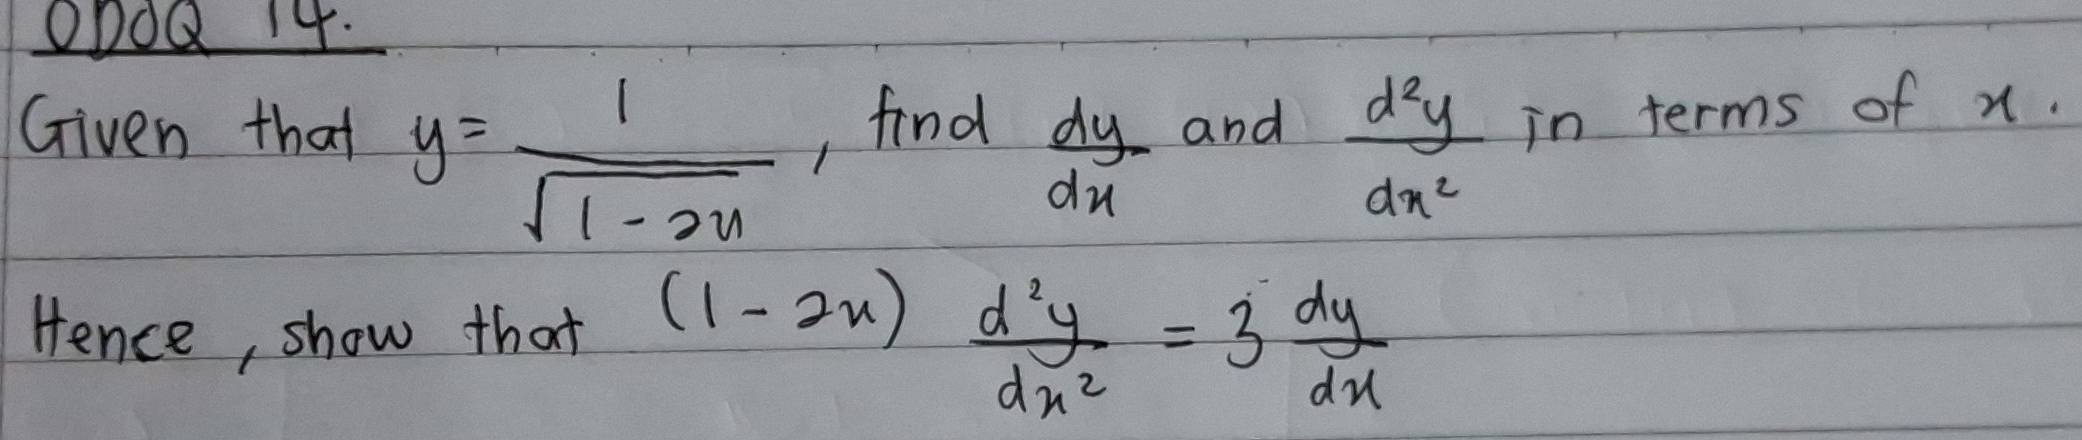 ODOQ 14.
Given that y = 1/√(1-2x), find dy/dx and d²y/dx² in terms of x.
Hence, show that (1-2x) d²y/dx² = 3 dy/dx